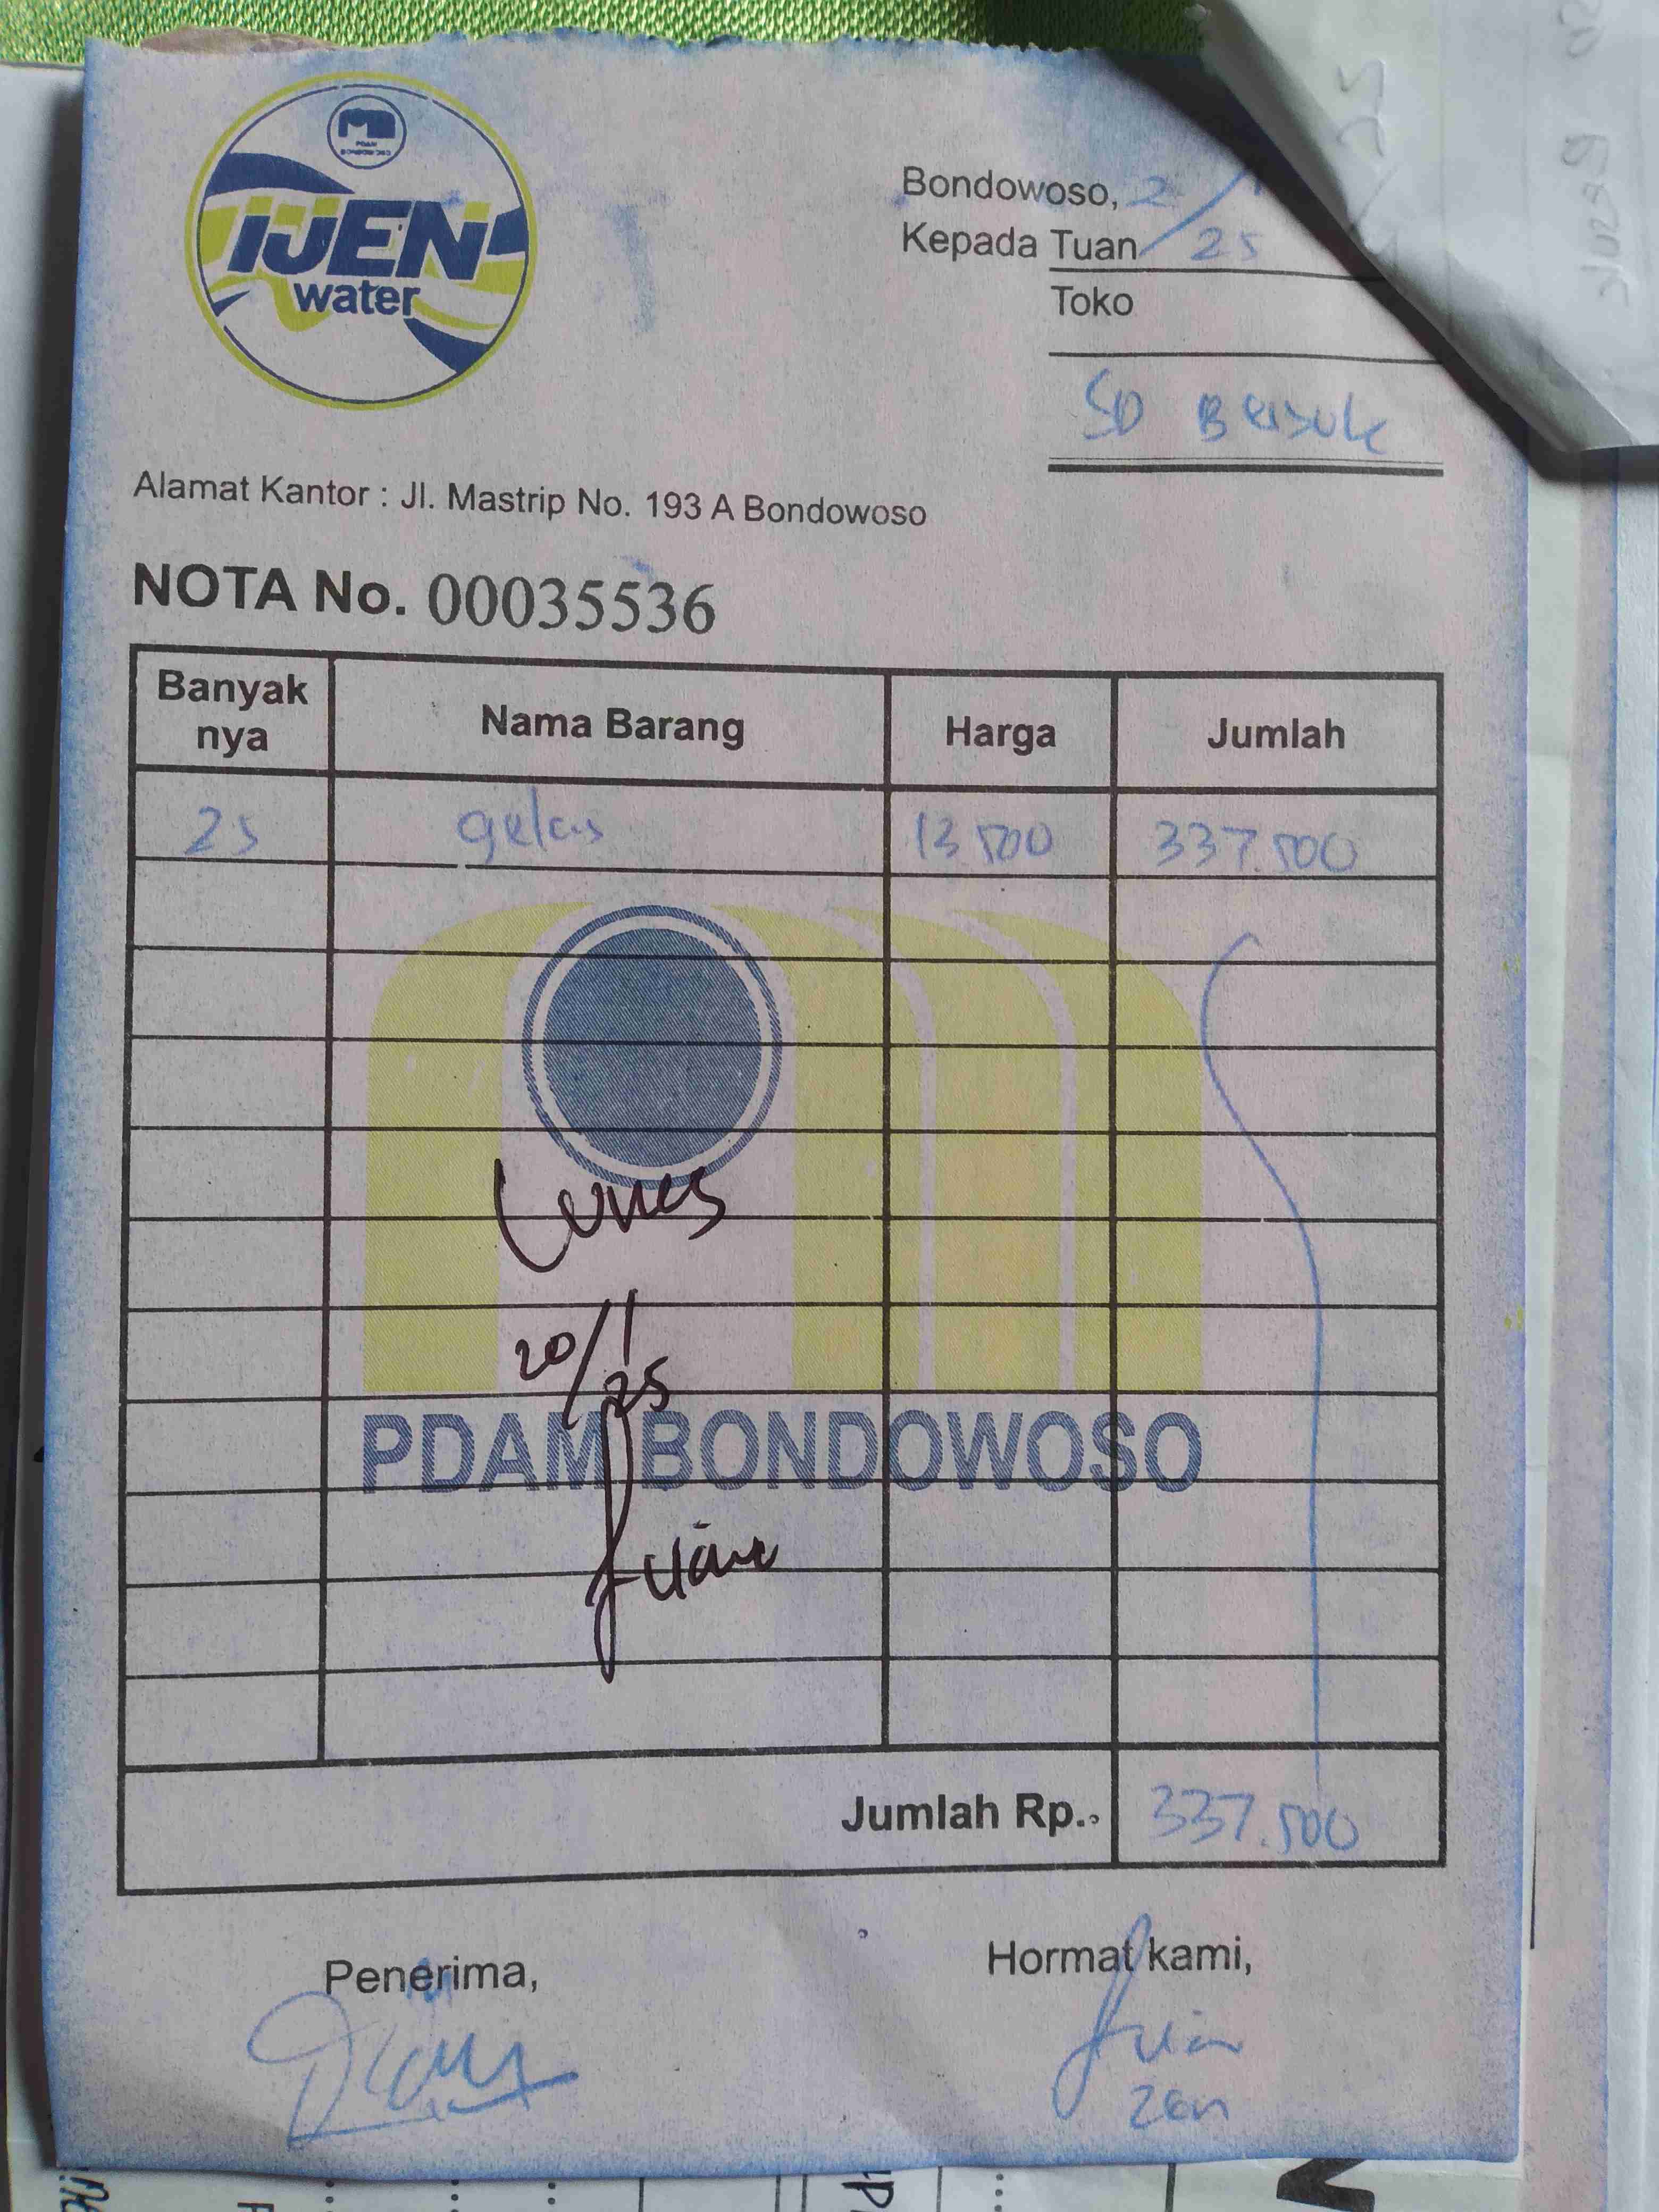 PDAM
BONDOWOSO
IJEN
water
Bondowoso, 2/1
Kepada Tuan 25
Toko
SD
Alamat Kantor : Jl. Mastrip No. 193 A Bondowoso
NOTA No. 00035536
Banyak nya Nama Barang Harga Jumlah
25 gelas 13.500 337.500
Lunas
20/1
25
PDAM BONDOWOSO
Jumlah Rp. 337.500
Penerima, Hormat kami,